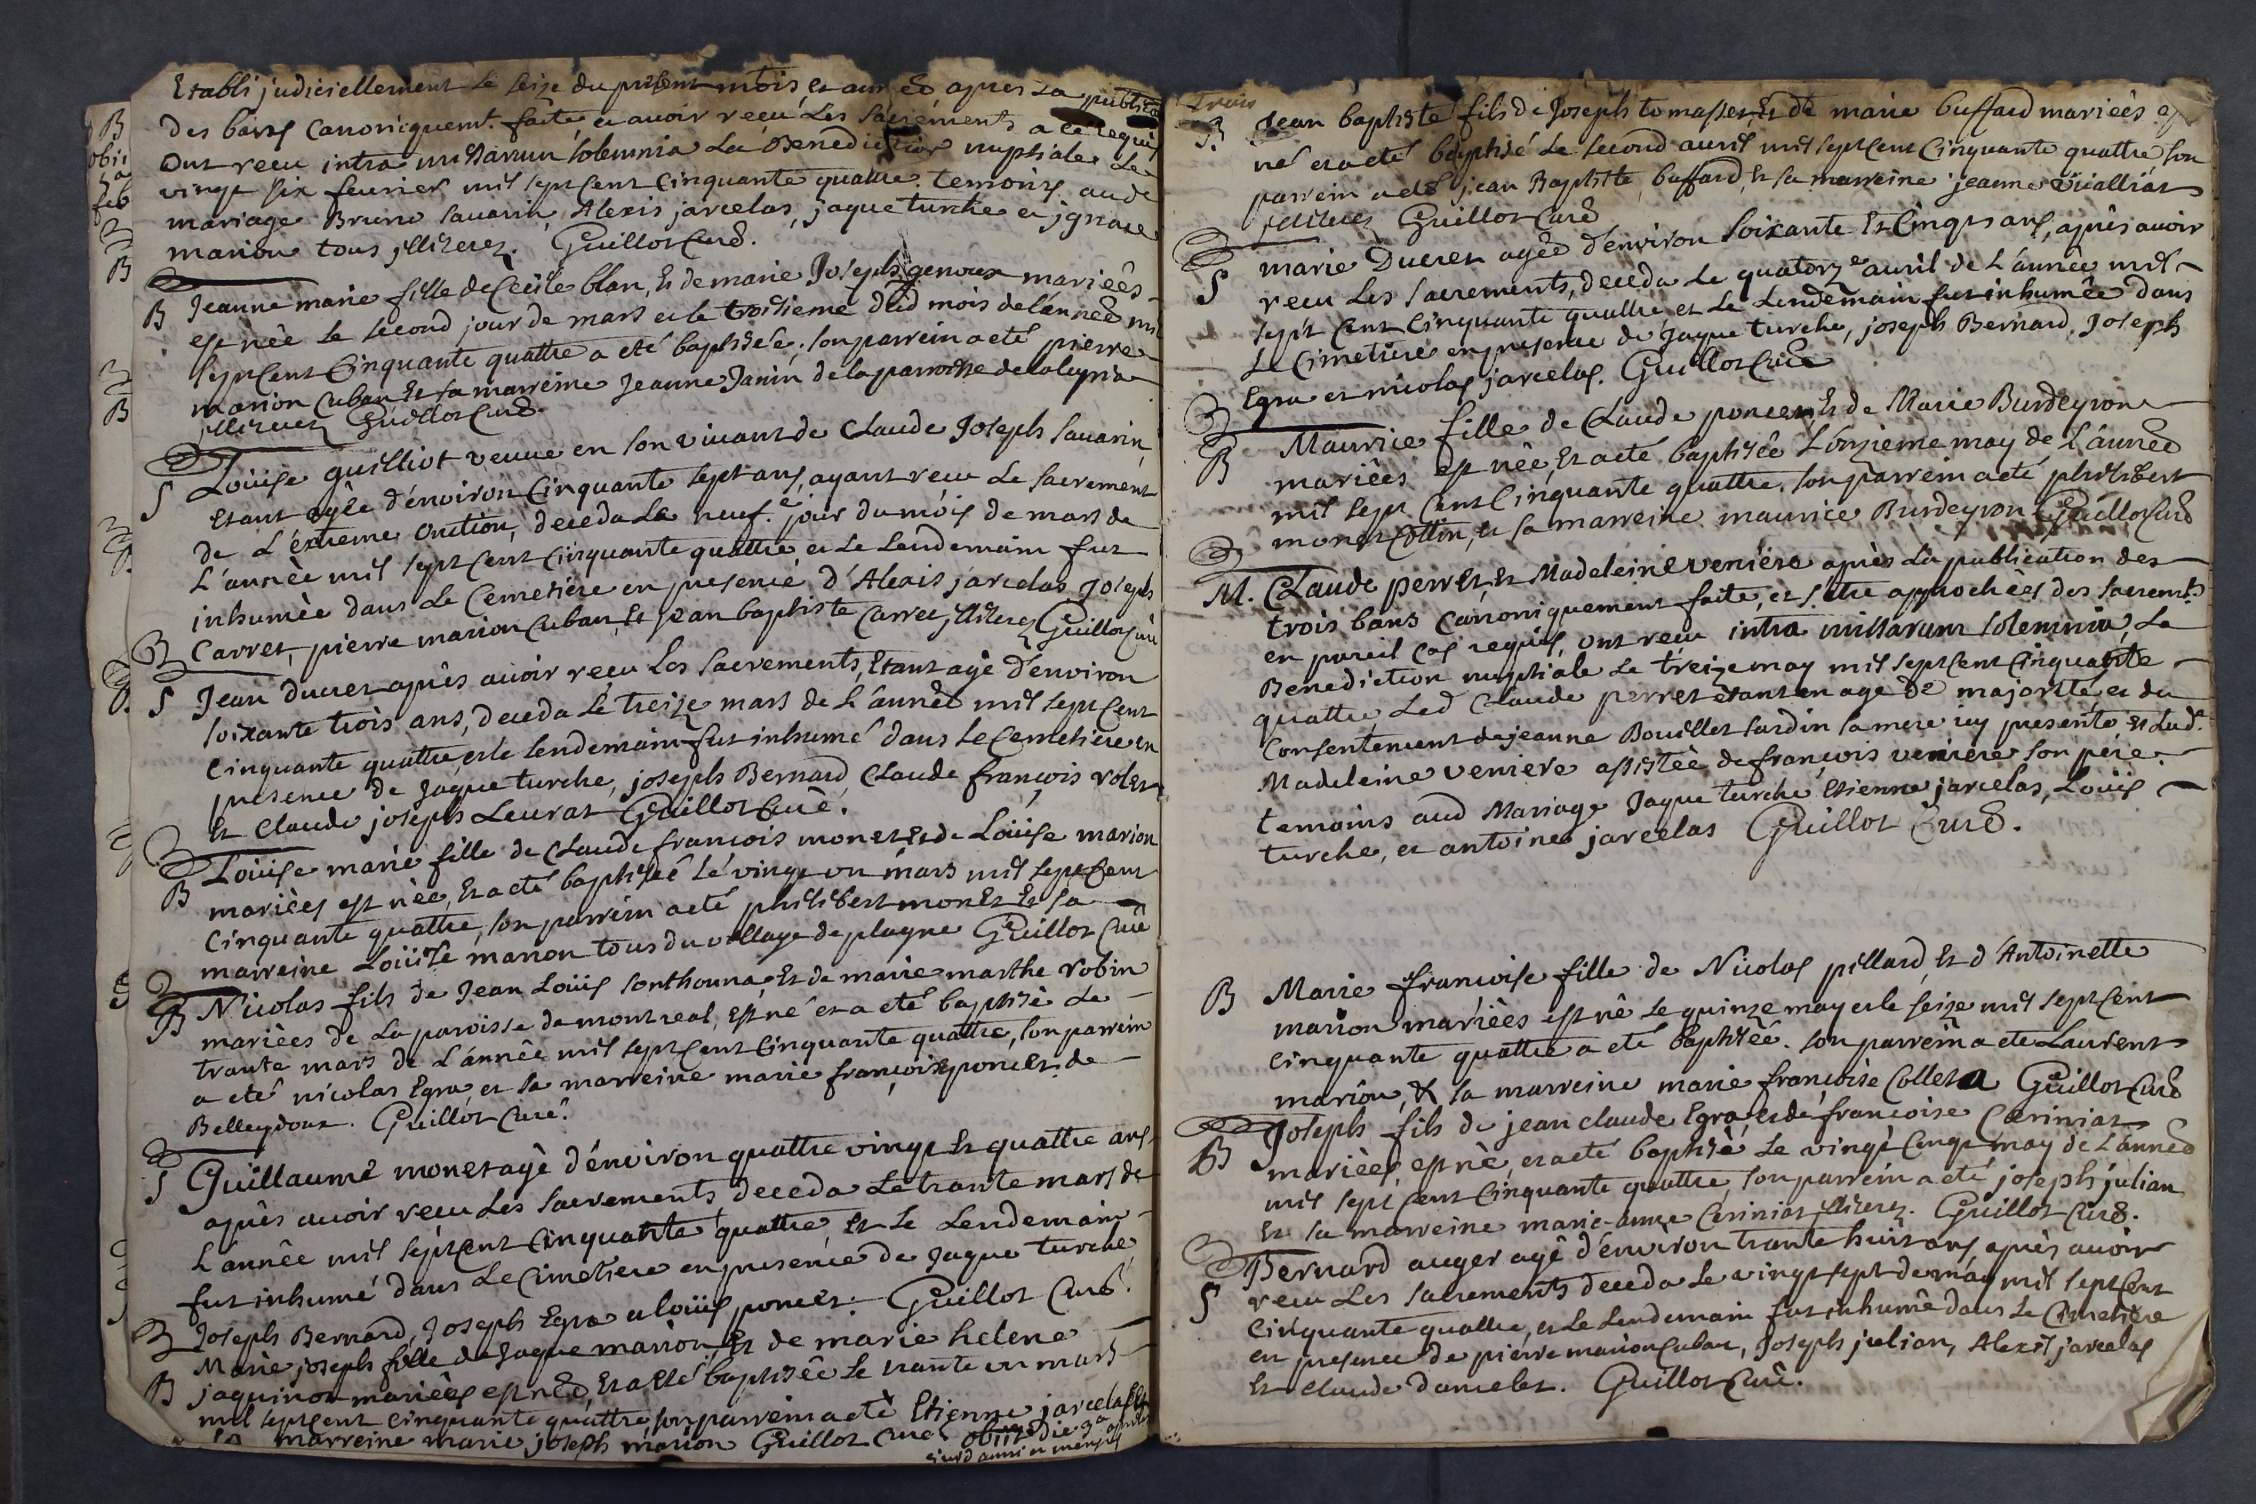 Etabli judiciellement le seize du présent mois et année apres la publica
des bans canonicquemt. faite et avoir recu Les Sacrements a ce requis
ont recu intra missarum solemnia La Benediction nuptiale Le
vingt six fevrier mil sept cent cinquante quattre. temoins aud
mariage Bruno Savarin, Alexis jarcelas, jaque turche et jgnace
marion tous jlliterez. Guillot Curé.
B Jeanne marie fille de Cecile blan, Et de marie Joseph genoux mariées
est née le second jour de mars et le troisieme dud mois de l'année mil
sept Cent Cinquante quattre a eté baptisée. son parrein a eté pierre
marion Cuban Et sa marreine Jeanne Janin de la parroisse de
jlliterez Guillot Curé.
S Loüise guilliot veuve en son vivant de Claude Joseph Savarin,
Etant agée d'environ Cinquante sept ans, ayant recu Le sacrement
de L'extreme onction, deceda Le neuf.e jour du móis de mars de
L'année mil sept Cent Cinquante quattre et Le Lendemain fut
inhumée dans Le Cemetiere en presence d'Alexis jarcelas Joseph
Carret, pierre marion Cuban, Et jean baptiste Carret jlliterez Guillot Curé
S Jean ducret après avoir recu Les sacrements, Etant agé d'environ
soixante trois ans, deceda Le treize mars de L'année mil sept Cent
cinquante quattre, et le lendemain fut inhumé dans le Cemetiere en
presence de jaque turche, joseph Bernard, Claude françois rolet
Et Claude joseph Leurat Guillot Curé.
B Loüise marie fille de Claude françois monet et de Loüise marion
mariées est née, Et a eté baptisée lé vingt un mars mil sept Cent
Cinquante quattre, son parrein a eté philibert monet Et sa
marreine Loüise marion tous du village de plagne Guillot Curé
B Nicolas fils de Jean Loüis sonthonna, Et de marie marthe robin
mariées de La paroisse de montreal, est né et a eté baptisé Le
trante mars de L'année mil sept Cent Cinquante quattre, son parrein
a eté nicolas Egra, et sa marreine marie françoise poncet de
Belleydoux. Guillot Curé.
S Guillaume monet agé d'environ quattre vingt Et quattre ans
après avoir recu Les sacrements deceda Le trante mars de
L'année mil sept Cent Cinquante quattre, Et le Lendemain
fut inhumé dans Le Cimetiere en presence de Jaque turche
Joseph Bernard, Joseph Egra et loüis poncet. Guillot Curé.
B Marie joseph fille de Jaque marion, Et de marie helene
jaquinot mariées est née, Et a eté baptisée Le trante un mars
mil sept Cent Cinquante quattre son parrein a eté Etienne jarcelas Et
sa marreine marie joseph marion Guillot Curé obiit die 3a aprilis
ejusd anni et mensis
trois
B. Jean baptiste fils de Joseph tomasset Et de marie buffard mariées est
né et a eté baptisé Le second avril mil sept Cent Cinquante quattre son
parrein a eté jean Baptiste buffard, Et sa marreine jeanne
jlliterez Guillot Curé
S marie Ducret agée d'environ soixante Et Cinq ans, après avoir
recu Les sacrements, deceda Le quatorze avril de L'année mil
sept Cent Cinquante quattre et Le Lendemain fut inhumée dans
Le Cimetiere en presence de Jaque turche, joseph Bernard, Joseph
Egra et nicolas jarcelas. Guillot Curé
B Maurice fille de Claude poncet, Et de Marie Burdeyron
mariées est née, Et a eté baptisée L'onzieme may de L'année
mil sept Cent Cinquante quattre, son parrein a eté philibert
monet Cottin, et sa marreine maurice Burdeyron Guillot Curé
M. Claude perret, Et Madeleine veniere après La publication des
trois bans canoniquement faite, et s'etre approchées des sacremts
en pareil cas requis, ont recu intra missarum solemnia, La
Benediction nuptiale Le treize may mil sept Cent Cinquante
quattre Led Claude perret etant en age de majorité, et du
Consentement de jeanne Bouillet Jardin sa mere icy presente Et Lade
Madeleine veniere assistée de françois veniere son pére.
temoins aud Mariage Jaque turche Etienne jarcelas, Loüis
turche, et antoine jarcelas Guillot Curé.
B Marie françoise fille de Nicolas pillard, Et d'Antoinette
marion mariées est né Le quinze may et le seize mil sept Cent
Cinquante quattre a eté baptisée. son parrein a eté Laurent
marion, & sa marreine marie françoise Collet Guillot Curé
B Joseph fils de jean claude Egra, et de françoise Ceriniat
mariées, est né, et a eté baptisé Le vingt Cinq may de L'année
mil sept Cent Cinquante quattre, son parrein a eté joseph julian
Et sa marreine marie-anne Ceriniat jlliterez. Guillot Curé.
S Bernard auger agé d'environ trante huit ans, après avoir
recu Les sacrements deceda Le vingt sept de may mil sept Cent
Cinquante quattre, et Le Lendemain fut inhumé dans Le Cimetiere
en presence de pierre marion Cuban, Joseph julian, Alexis jarcelas
Et Claude dancelet. Guillot Curé.